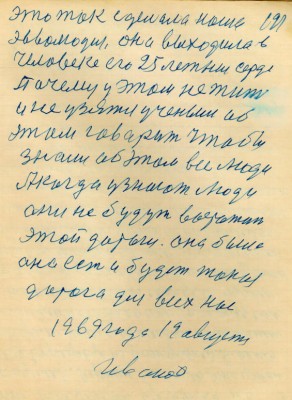 это так сделала наша 191
эвволюция, она выходила в
человеке его 25 летним серде
Почему у этом не жить
и не узяти ученым об
этом гаварят чтобы
знали об этом все люди
А когда узнают люди
они не будут
этой дароги. она была
она есть и будет такая
дорога для всех нас
1969 года 19 августа
Иванов